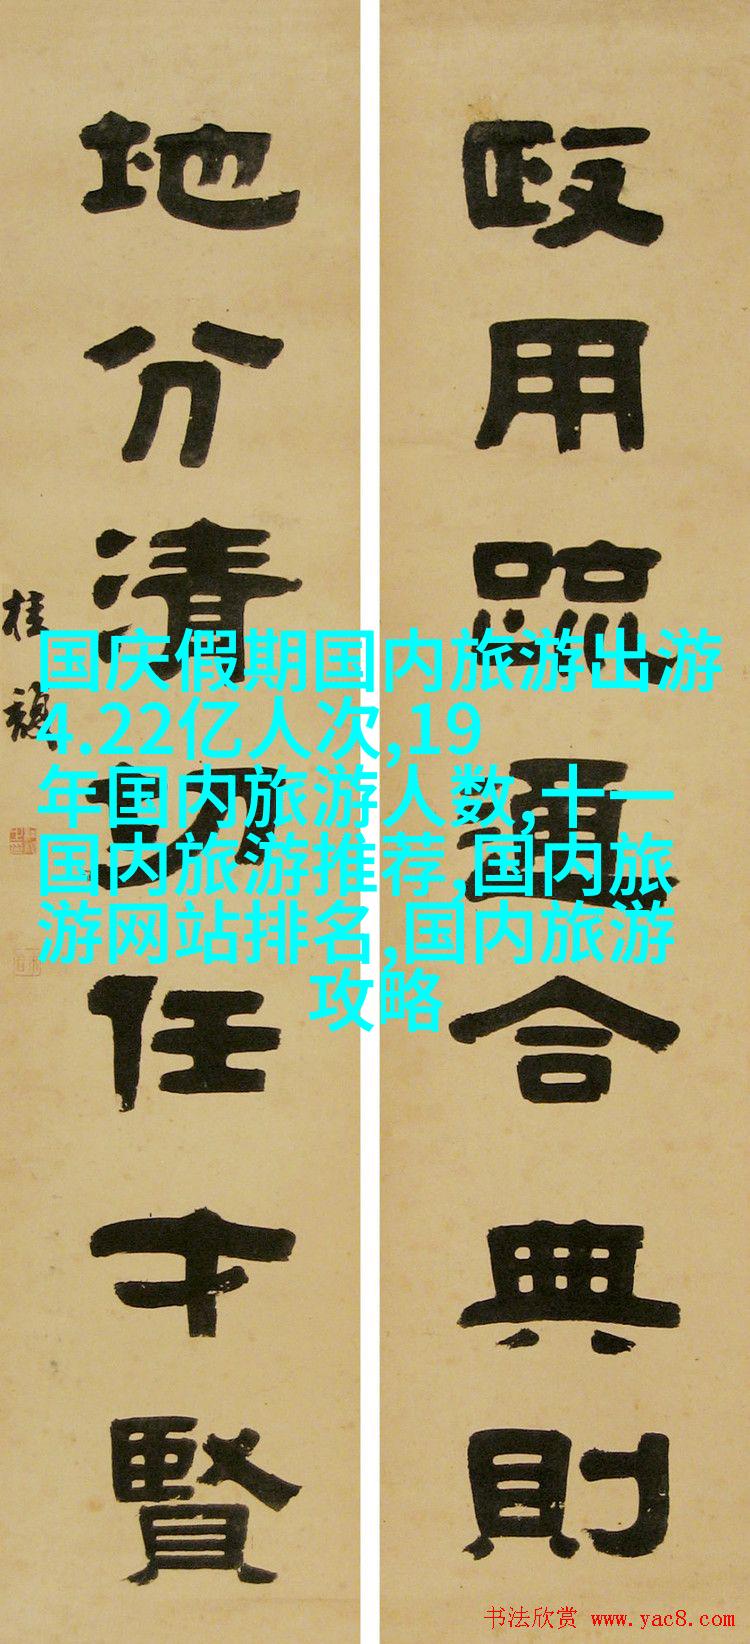 政用疏通合典則
地分清切任才賢
桂馥
国庆假期国内旅游出游
4.22亿人次,19
年国内旅游人数,十一
国内旅游推荐,国内旅
游网站排名,国内旅游
攻略
书法欣赏 www.yac8.com